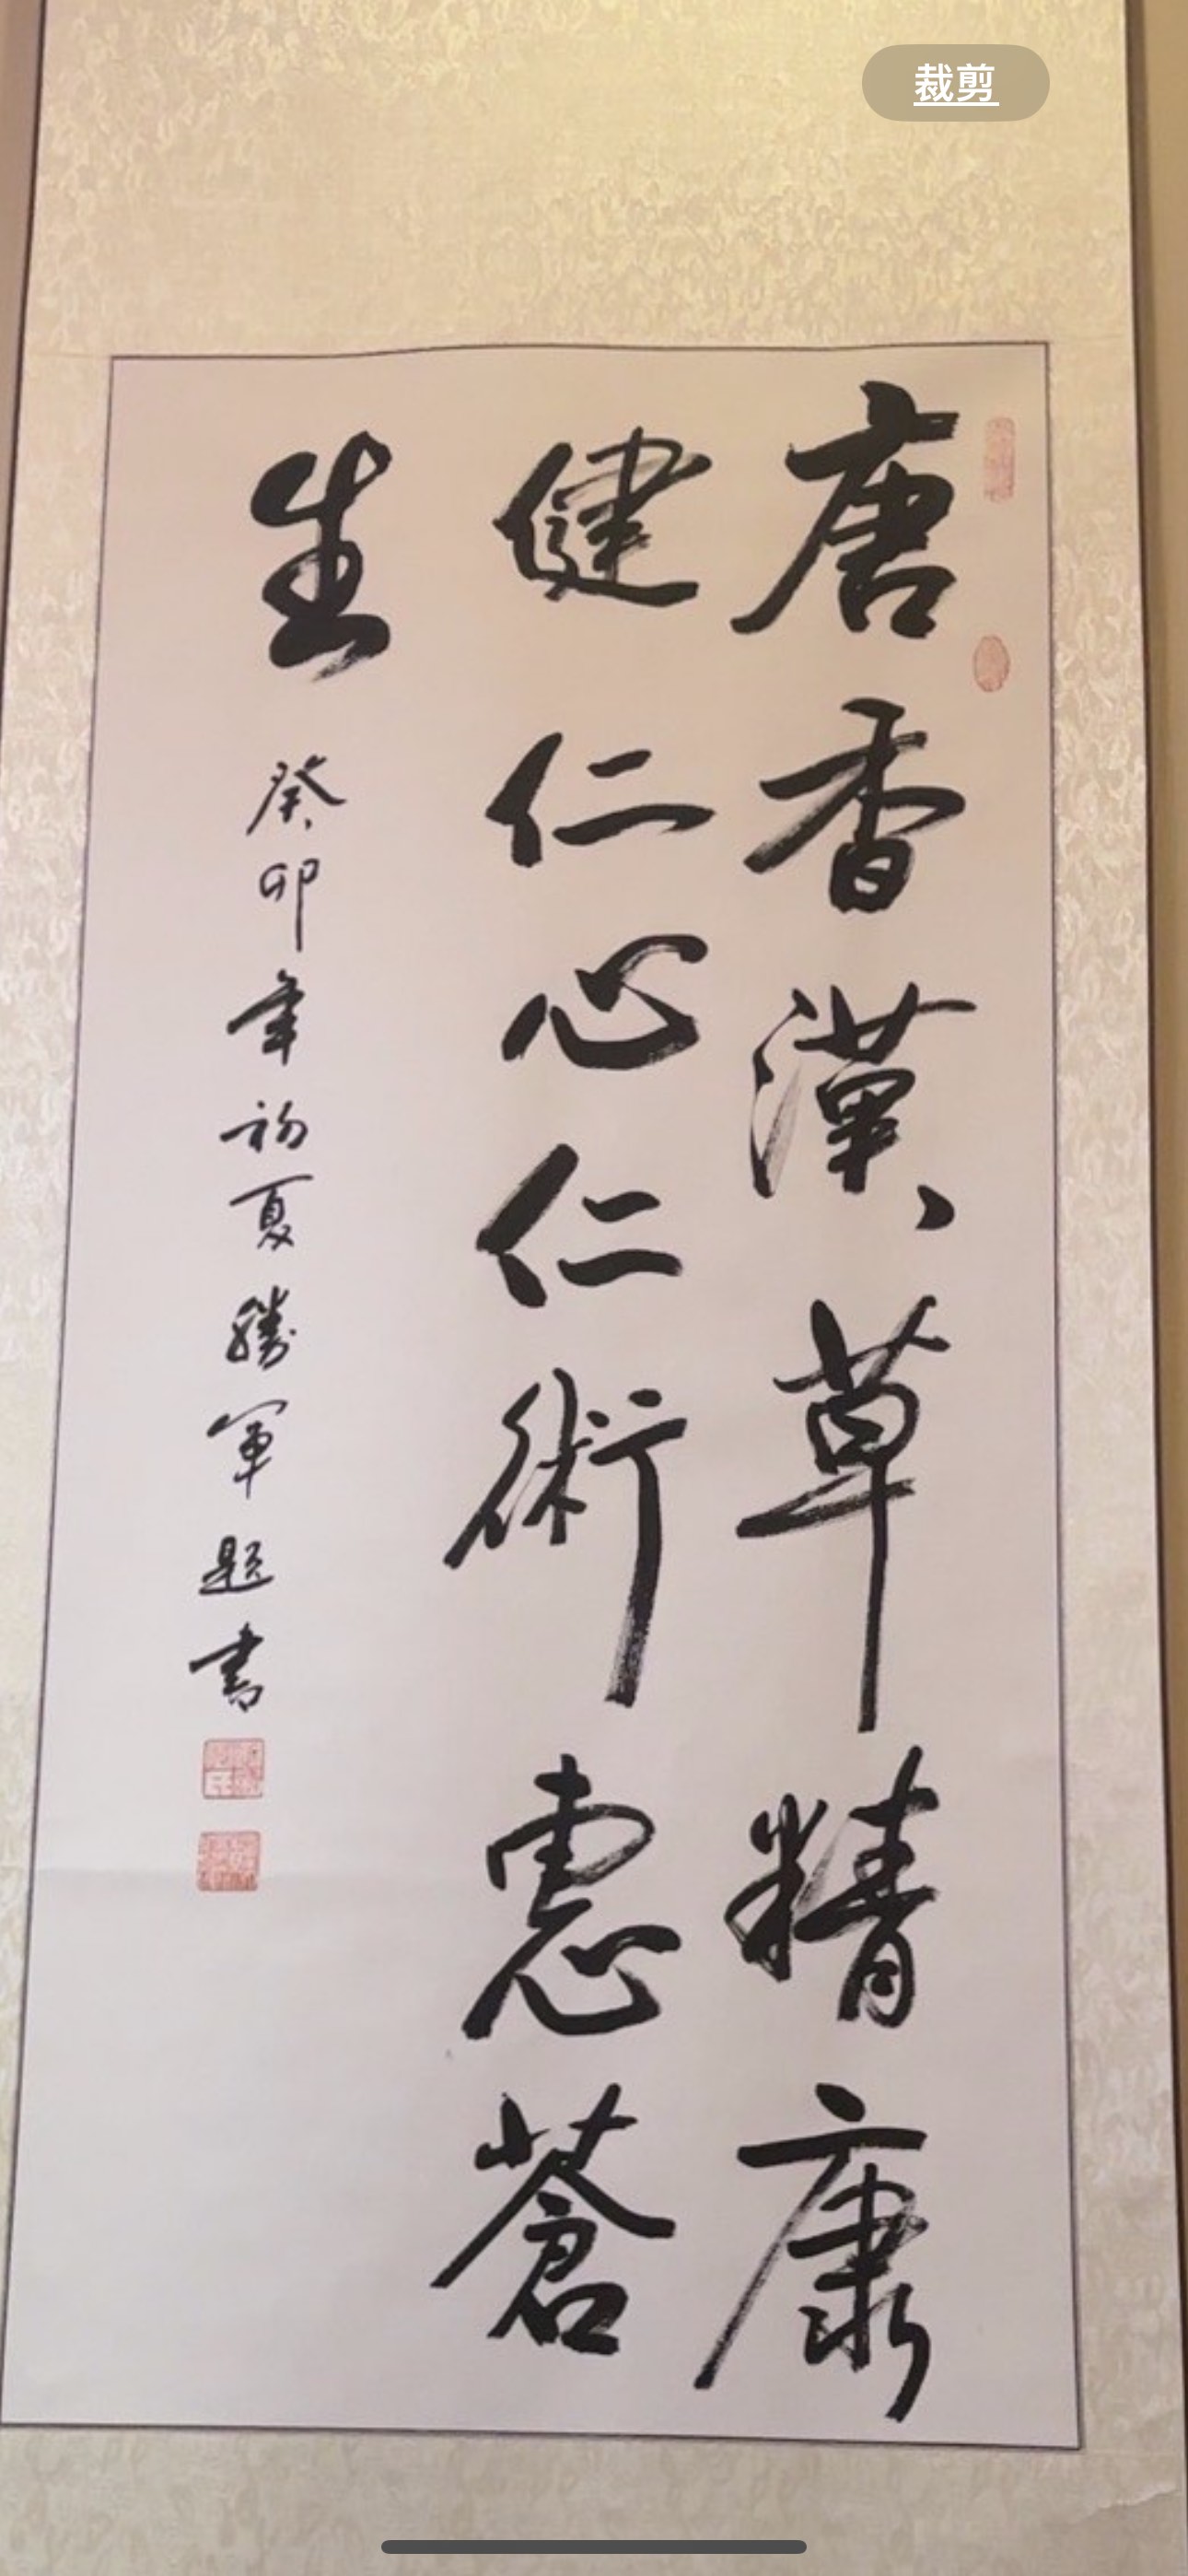 裁剪
唐香漢草精康
健仁心仁術惠蒼
生
癸卯年初夏勝軍題書